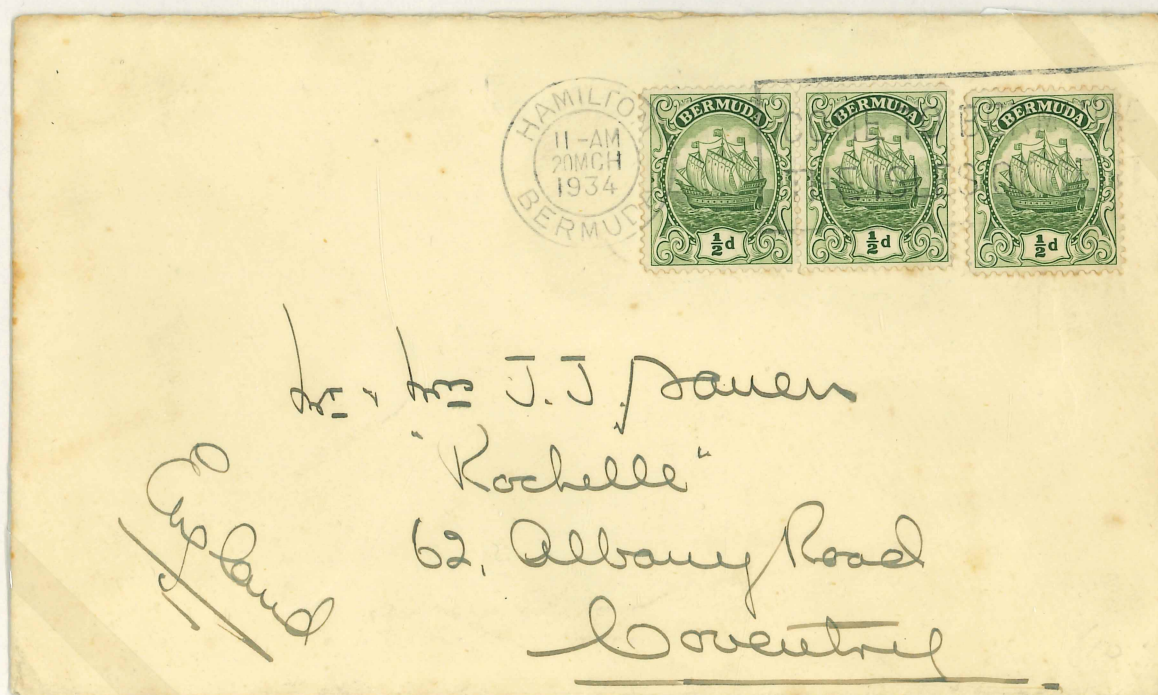 HAMILTON
11-AM
20MCH
1934
BERMUDA
BERMUDA
½d
BERMUDA
½d
BERMUDA
½d
COME TO
Mr & Mrs J. J.
"Rochelle"
62, Albany Road
Coventry
England